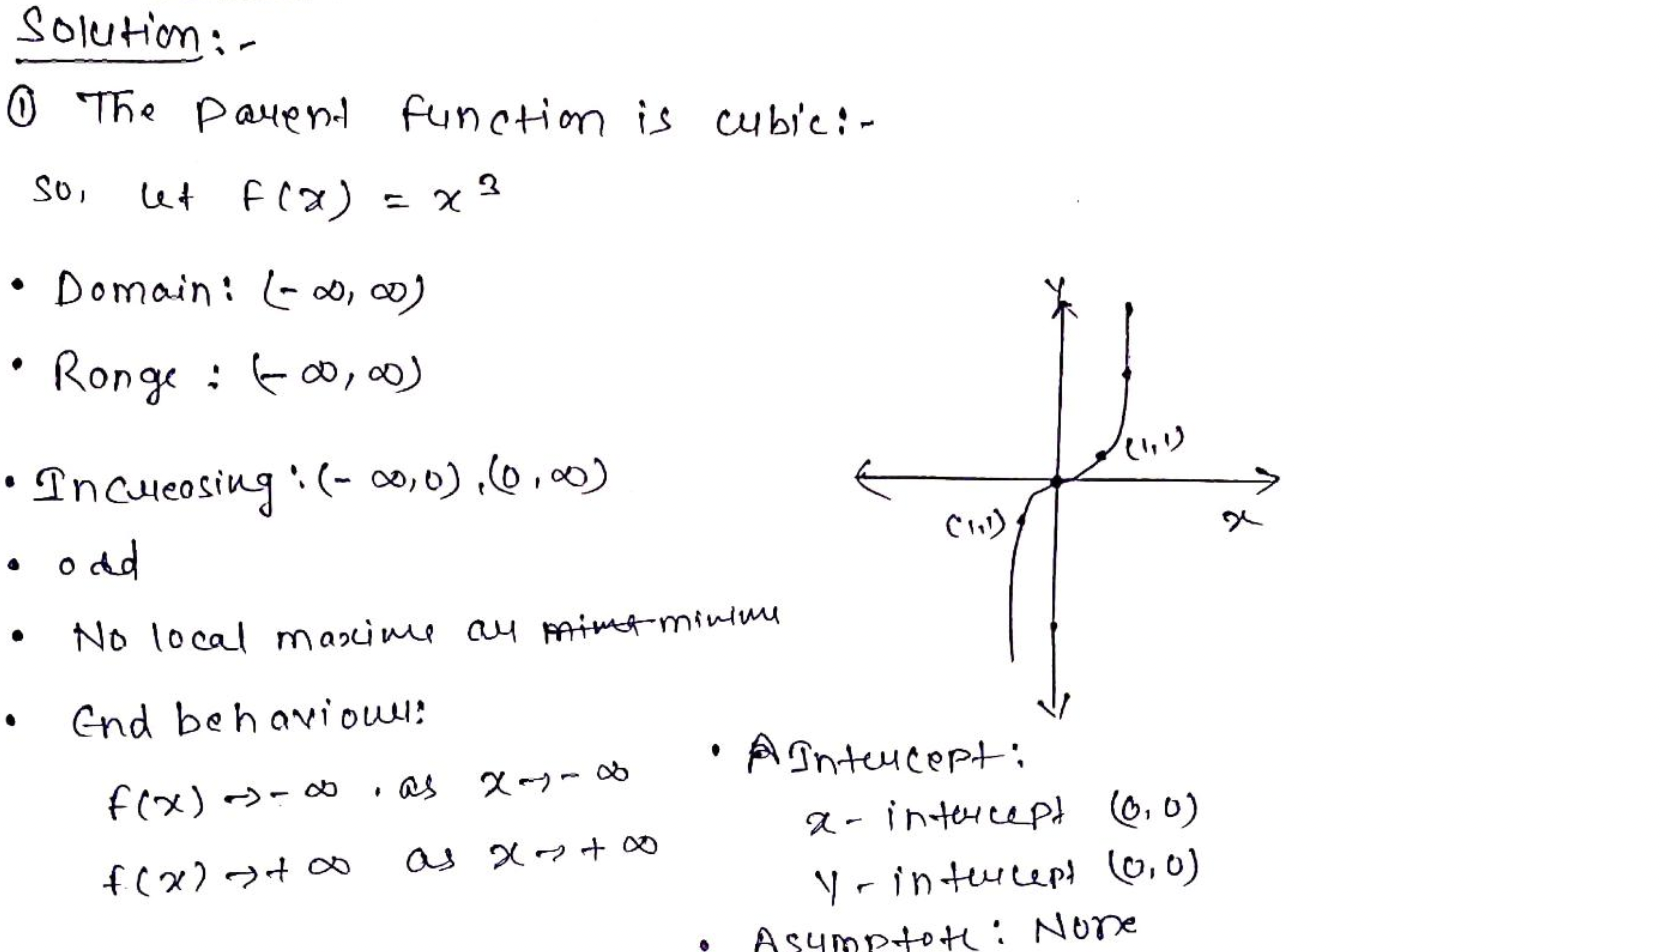 Solution:-
① The Parent function is cubic:-
So, let f(x) = x³
• Domain: (-∞, ∞)
• Range : (-∞, ∞)
• Increasing : (-∞, 0), (0, ∞)
• odd
• No local maxime ar minime
• End behaviour:
f(x) → -∞, as x → -∞
f(x) → +∞ as x → +∞
Y
(1,1)
(1,1)
x
• Intercept:
x - intercept (0, 0)
Y - intercept (0, 0)
• Asymptote : None